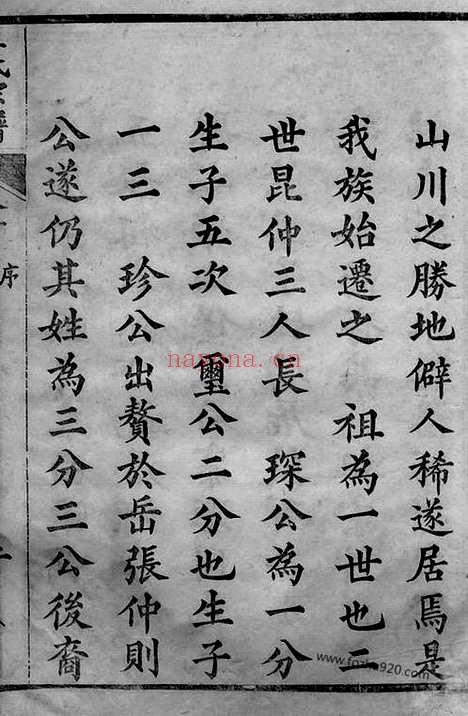 山川之勝地僻人稀遂居焉是
我族始遷之 祖為一世也二
世昆仲三人長 琛公為一分
生子五次 璽公二分也生子
一三 珍公出贅於岳張仲則
公遂仍其姓為三分三公後裔
氏宗譜
序
nayona.cn